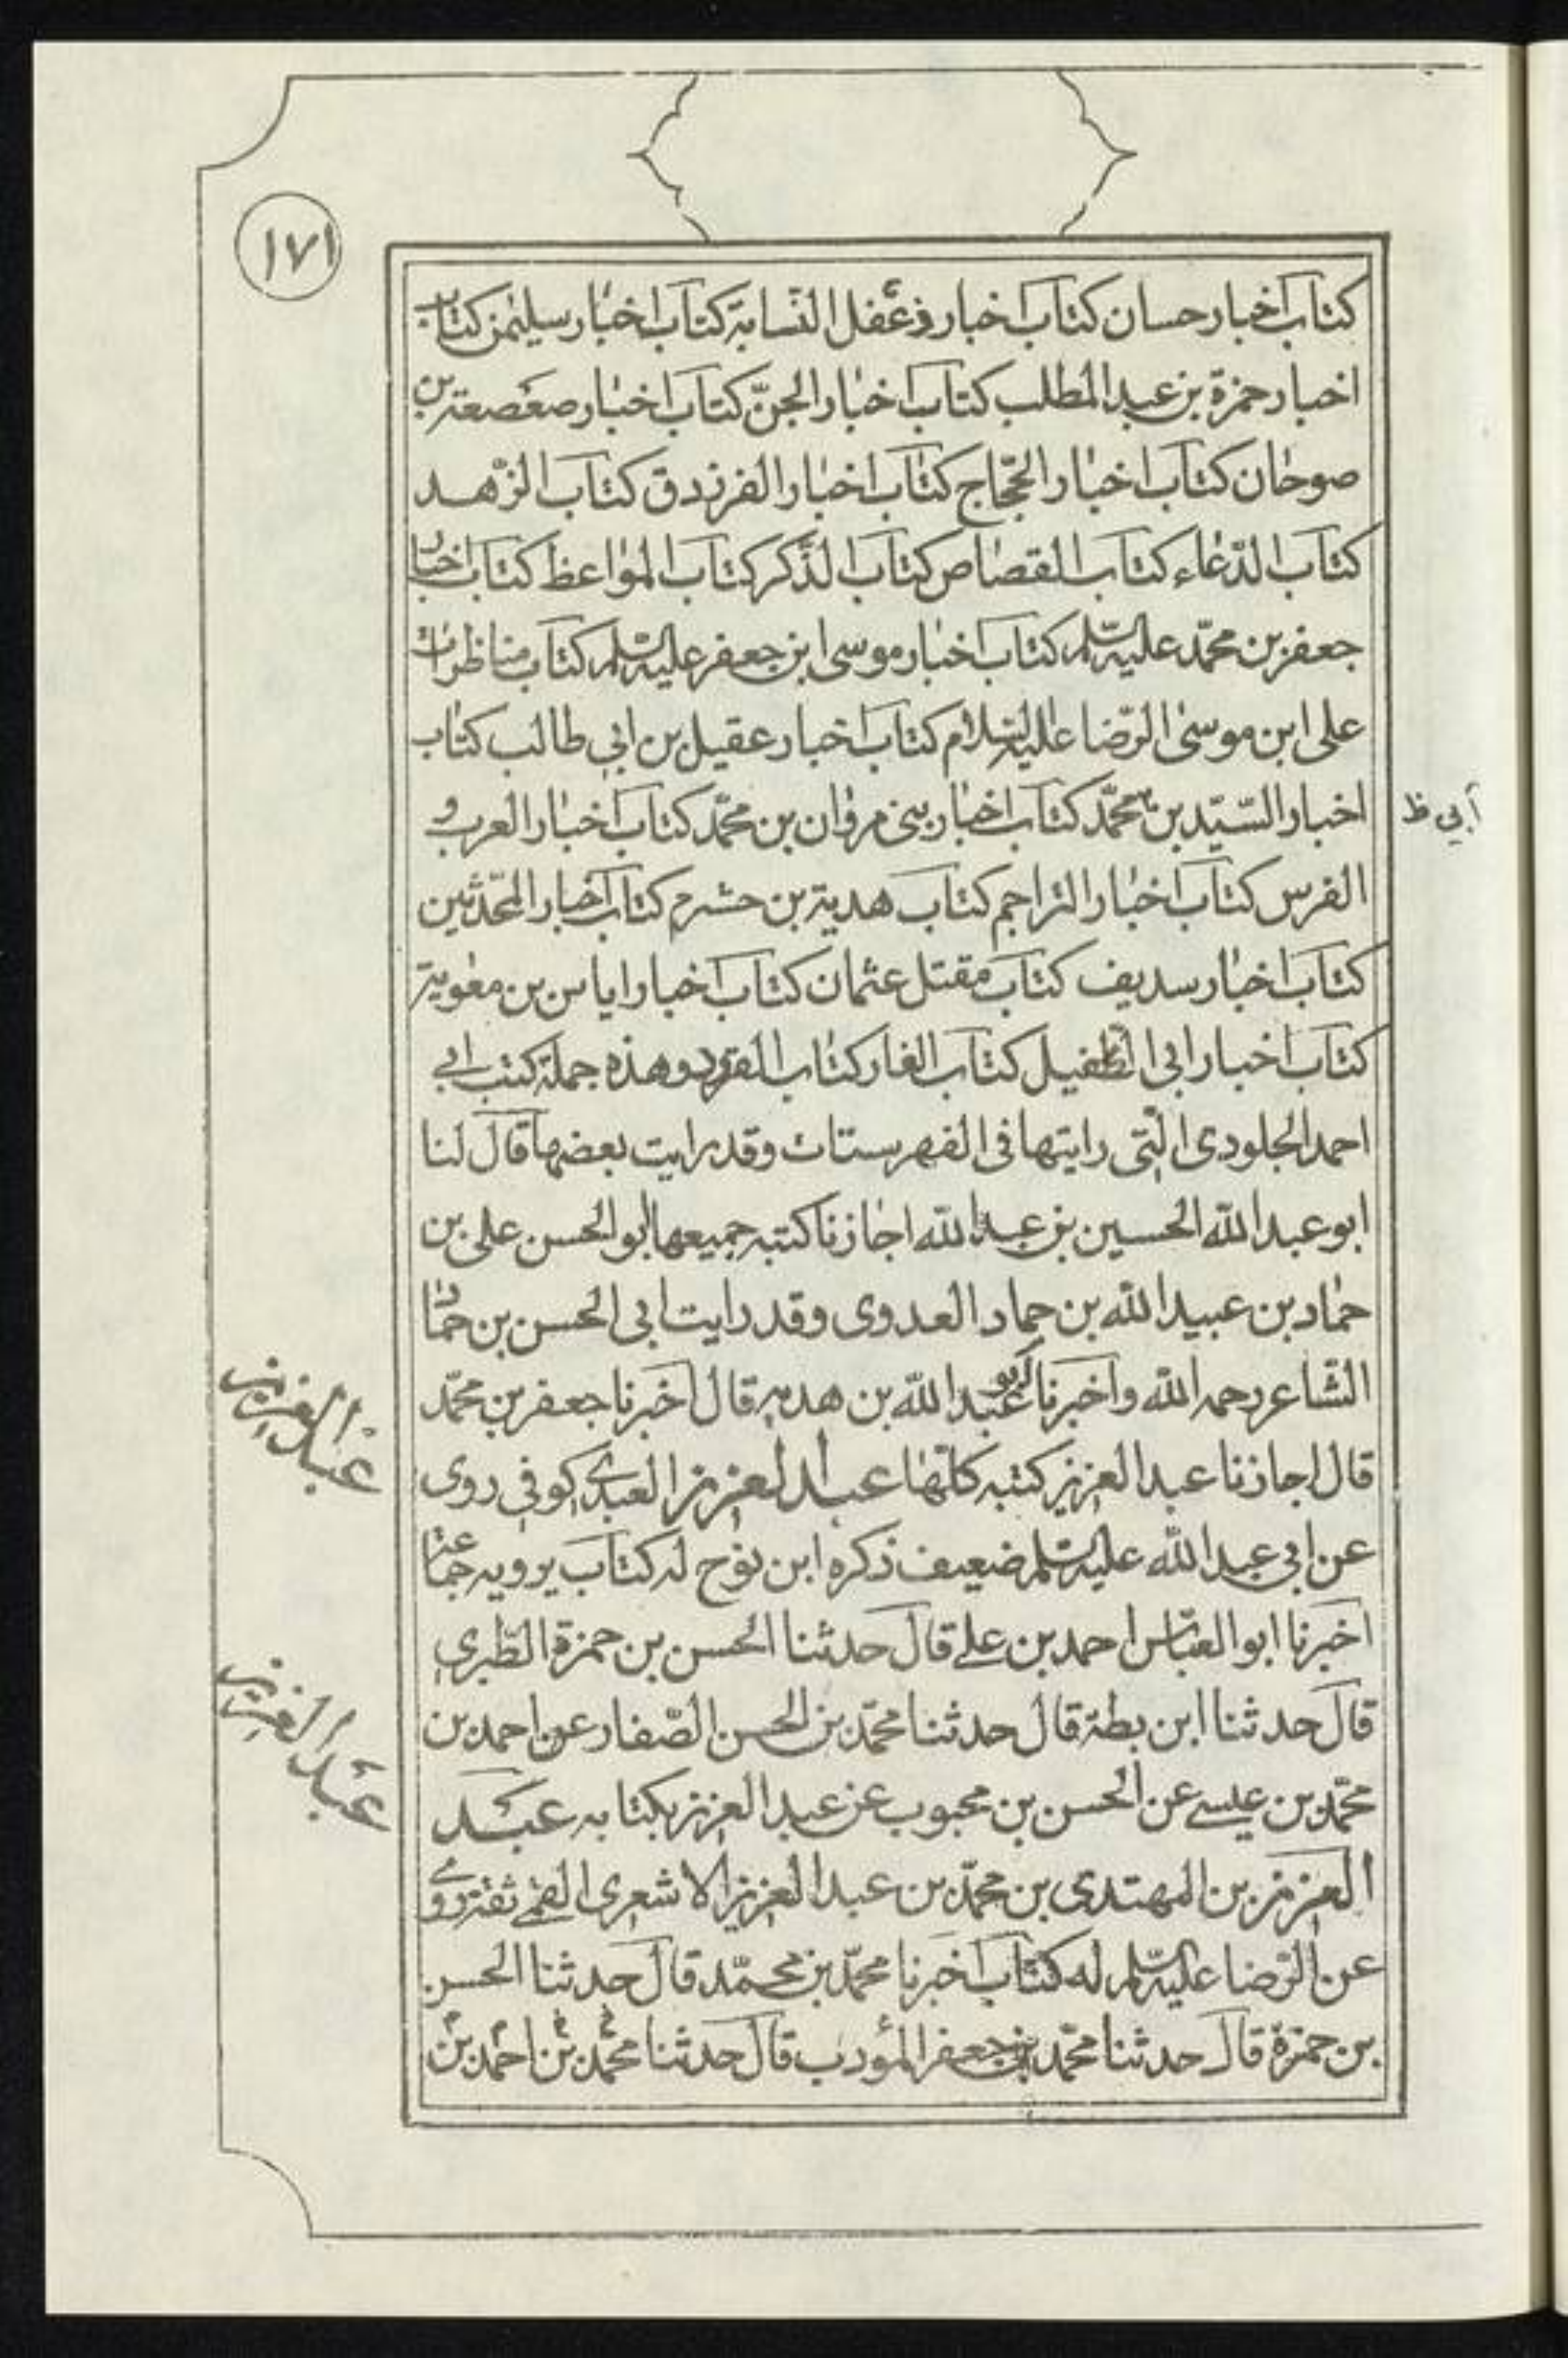 ١٧١
كتاب اخبار حسان كتاب اخبار دغفل النسابة كتاب اخبار سليمن كتاب
اخبار حمزة بن عبد المطلب كتاب اخبار الجنّ كتاب اخبار صعصعة بن
صوحان كتاب اخبار الحجّاج كتاب اخبار الفرزدق كتاب الزّهد
كتاب الدّعاء كتاب القصاص كتاب الذّكر كتاب المواعظ كتاب اخبار
جعفر بن محمّد عليه السّلم كتاب اخبار موسى ابن جعفر عليه السّلم كتاب مناظرات
على ابن موسى الرّضا عليه السّلام كتاب اخبار عقيل بن ابي طالب كتاب
اخبار السّيّد بن محمّد كتاب اخبار بنى مروان بن محمّد كتاب اخبار العرب و
أبي ظ
الفرس كتاب اخبار التراجم كتاب هدية بن حشرم كتاب اخبار المحّدثين
كتاب اخبار سديف كتاب مقتل عثمان كتاب اخبار اياس بن معوية
كتاب اخبار ابى الطّفيل كتاب الغار كتاب القرود وهذه جملة كتب ابى
احمد الجلودى الّتى رايتها فى الفهرستات وقد رايت بعضها قال لنا
ابو عبد الله الحسين بن عبد الله اجازنا كتبه جميعها ابو الحسن على بن
حماد بن عبيد الله بن حماد العدوى وقد رايت ابى الحسن بن حماد
الشّاعر رحمه الله واخبرنا ابو عبد الله بن هدية قال اخبرنا جعفر بن محمّد
قال اجازنا عبد العزيز كتبه كلّها عبد العزيز العبدى كوفى روى
عبد العزيز
عن ابى عبد الله عليه السّلم ضعيف ذكره ابن نوح له كتاب يرويه جماعة
اخبرنا ابو العبّاس احمد بن على قال حدثنا الحسن بن حمزة الطّبرى
قال حدثنا ابن بطة قال حدثنا محمّد بن الحسن الصّفار عن احمد بن
محمّد بن عيسى عن الحسن بن محبوب عن عبد العزيز بكتابه عبد
عبد العزيز
العزيز بن المهتدى بن محمّد بن عبد العزيز الاشعرى القمى ثقة روى
عن الرّضا عليه السّلم له كتاب اخبرنا محمّد بن محمّد قال حدثنا الحسن
بن حمزة قال حدثنا محمّد بن جعفر المؤدب قال حدثنا محمّد بن احمد بن